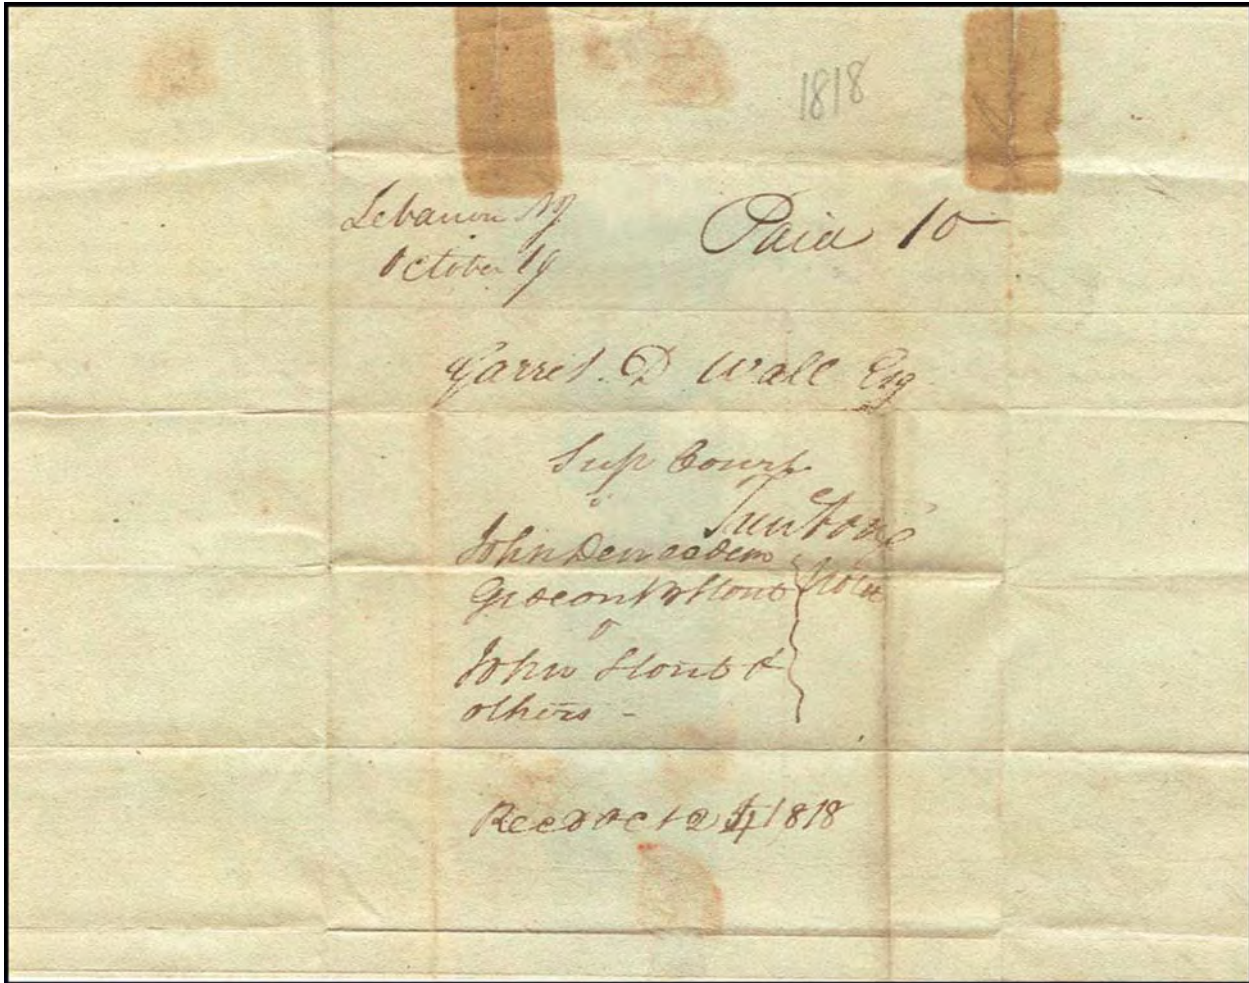 1818
Lebanon NJ
October 19
Paid 10
Garret D Wall Esq
Sup Court
Trenton
John Den ex dem
Gideon Stout
v
John Stout &
others -
Recd Oct 24 1818